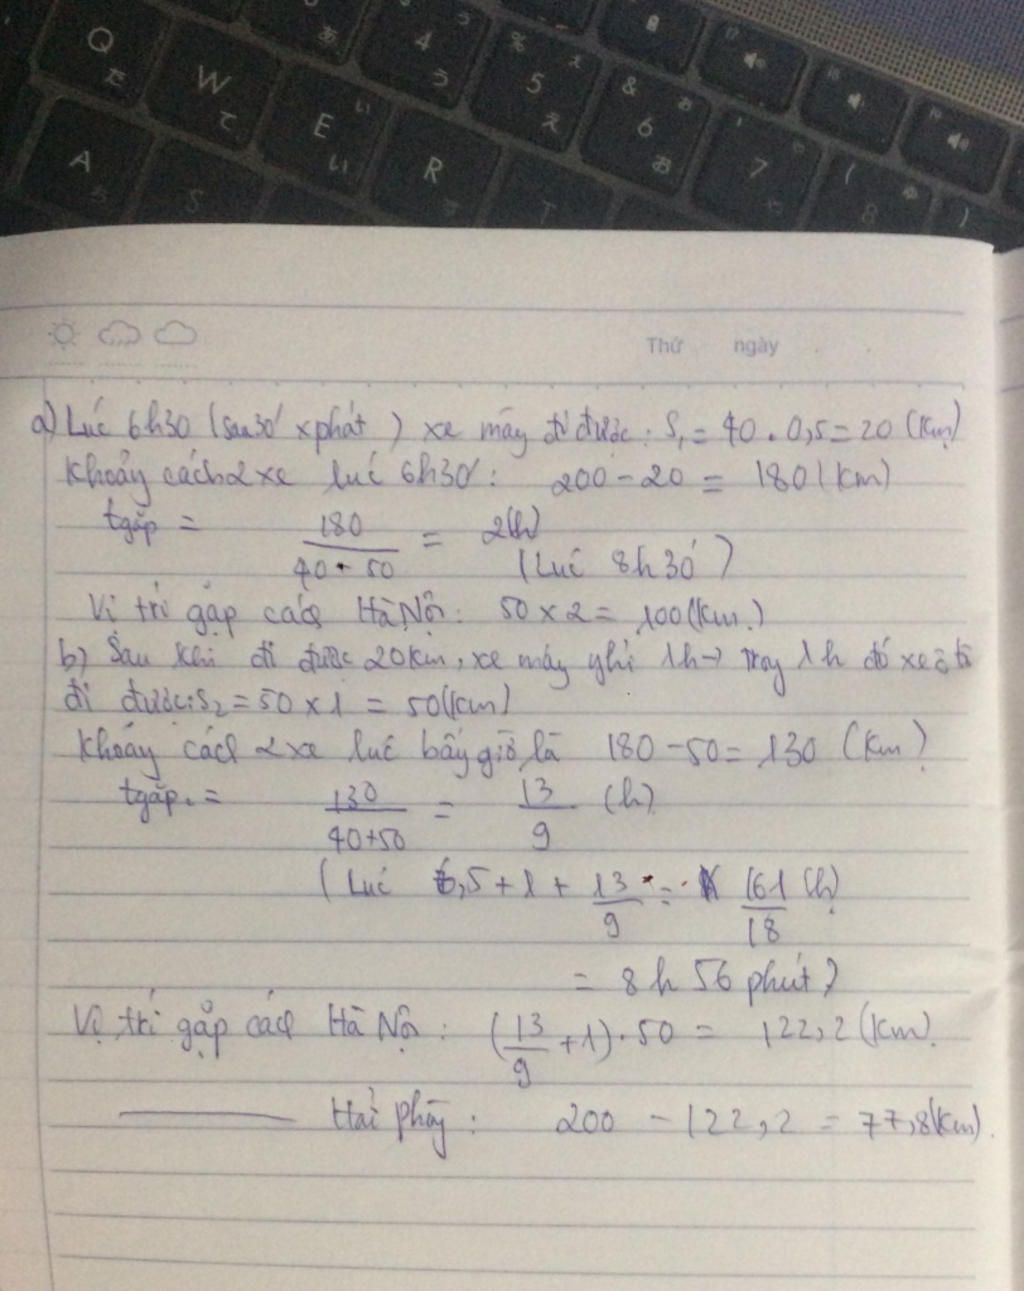 Q た
W て
E い い
R す
4 う う
% 5 え え
& 6 お お
' 7 や や
( 8 ゆ
)
A ち
S
T
Thứ ngày
a) Lúc 6h30 (sau 30' xphát) xe máy đi được: S₁ = 40 . 0,5 = 20 (Km)
Khoảng cách 2 xe lúc 6h30': 200 - 20 = 180 (Km)
tgặp = 180/40 + 50 = 2(h)
(Lúc 8h30')
Vị trí gặp cách Hà Nội: 50 x 2 = 100 (Km)
b) Sau khi đi được 20Km, xe máy nghỉ 1h → trong 1h đó xe ô tô
đi được: S₂ = 50 x 1 = 50 (Km)
Khoảng cách 2 xe lúc bấy giờ là 180 - 50 = 130 (Km)
tgặp = 130/40+50 = 13/9 (h)
(Lúc 6,5 + 1 + 13/9 = 161/18 (h)
= 8h 56 phút)
Vị trí gặp cách Hà Nội: (13/9 + 1) . 50 = 122,2 (Km)
Hải phòng: 200 - 122,2 = 77,8 (Km).